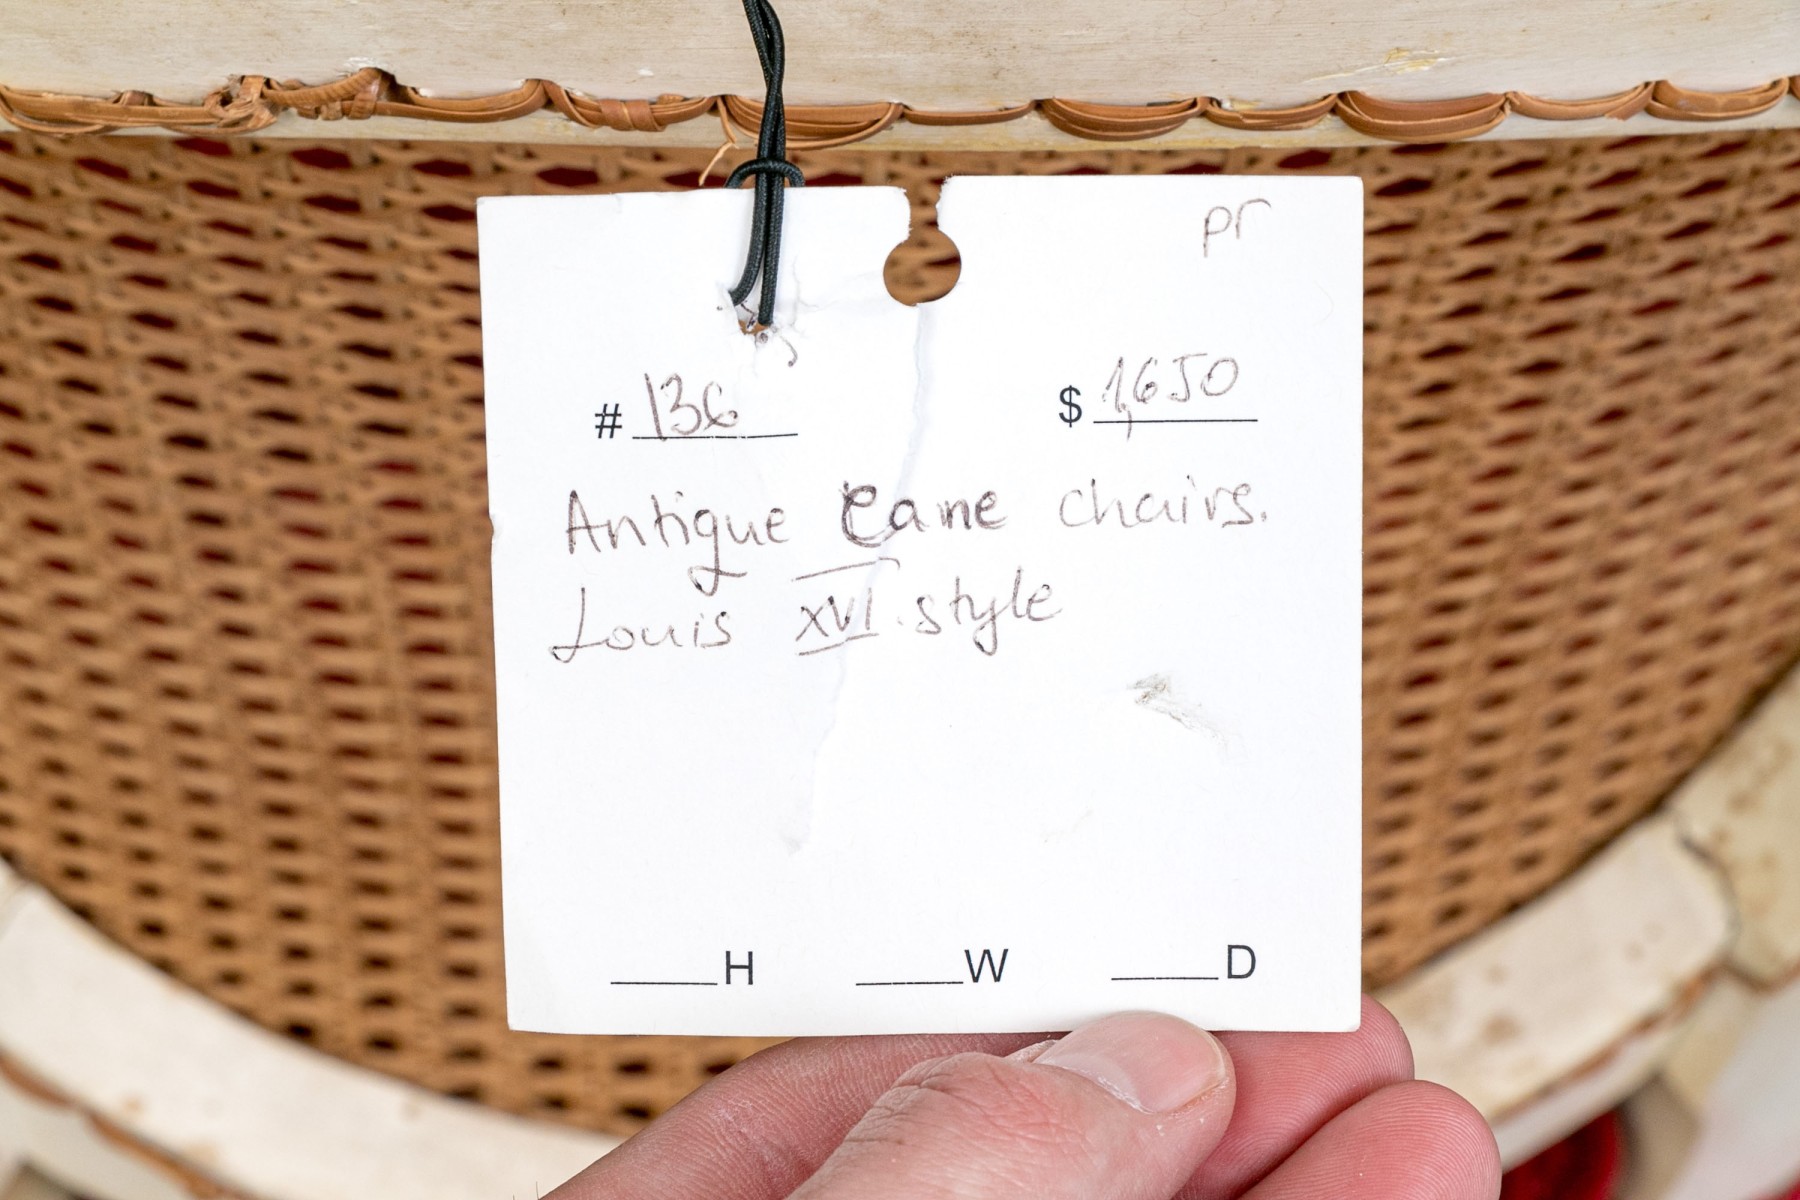 pr
# 136 $ 1,650
Antique Cane chairs.
Louis XVI style
____H ____W ____D